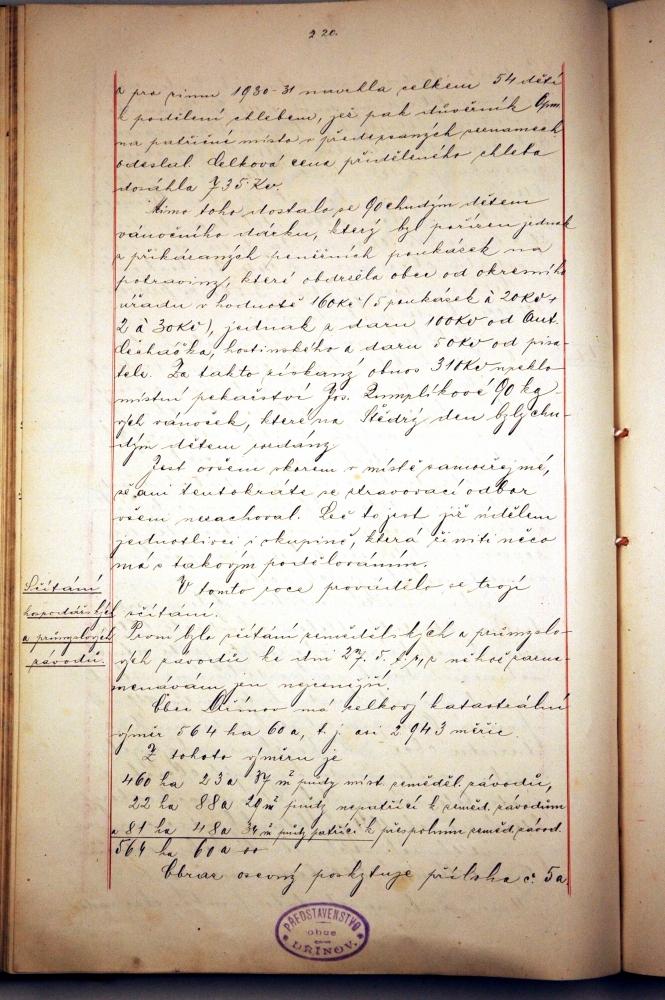 220.
a pro zimu 1930-31 navrhla celkem 54 dětí
k podílení chlebem, jež pak důvěrník Opm
na patřičné místo v předepsaných seznamech
odeslal. Celková cena přiděleného chleba
dosáhla 735 Kč.
Mimo toho dostalo se 90 chudým dětem
vánočního dárku, který byl pořízen jednak
z přikázaných peněžních poukázek na
potraviny, které obdržela obec od okresního
úřadu v hodnotě 160 Kč (5 poukázek à 20 Kč +
2 à 30 Kč), jednak z daru 100 Kč od Ant.
hostinského a daru 50 Kč od pisa-
tele. Za takto získaný obnos 310 Kč upeklo
místní pekařství Jos. Rumplíkové 90 kg-
vých vánoček, které na Štědrý den byly chu-
dým dětem rozdány
Jest ovšem skorem v místě samozřejmé,
že ani tentokráte se stravovací odbor
všem nezachoval. Leč to jest již údělem
jednotlivci i skupině, která činiti něco
má s takovým podělováním.
V tomto roce provádělo se trojí
Sčítání
hospodářských
a průmyslových
závodů.
sčítání.
První bylo sčítání zemědělských a průmyslo-
vých závodů ke dni 27. 5. t. r., z něhož zazna-
menávám jen nejcennější.
Obec Dřínov má celkový katastrální
výměr 564 ha 60 a, t. j. asi 2943 měřic.
Z tohoto výměru je
460 ha 23 a 37 m² půdy míst. zeměděl. závodů,
22 ha 88 a 29 m² půdy nepatřící k zeměd. závodům
a 81 ha 48 a 34 m² půdy patřící k přespolním zeměd. závod.
564 ha 60 a 00
Obraz osevný poskytuje příloha č. 5a.
PŘEDSTAVENSTVO
obce
DŘÍNOV.